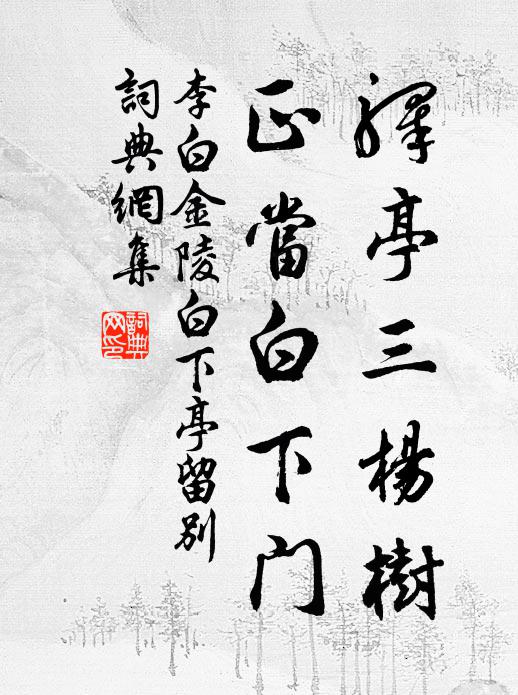 驛亭三楊樹
正當白下門
李白金陵白下亭留別
詞典網集
詞典
网印